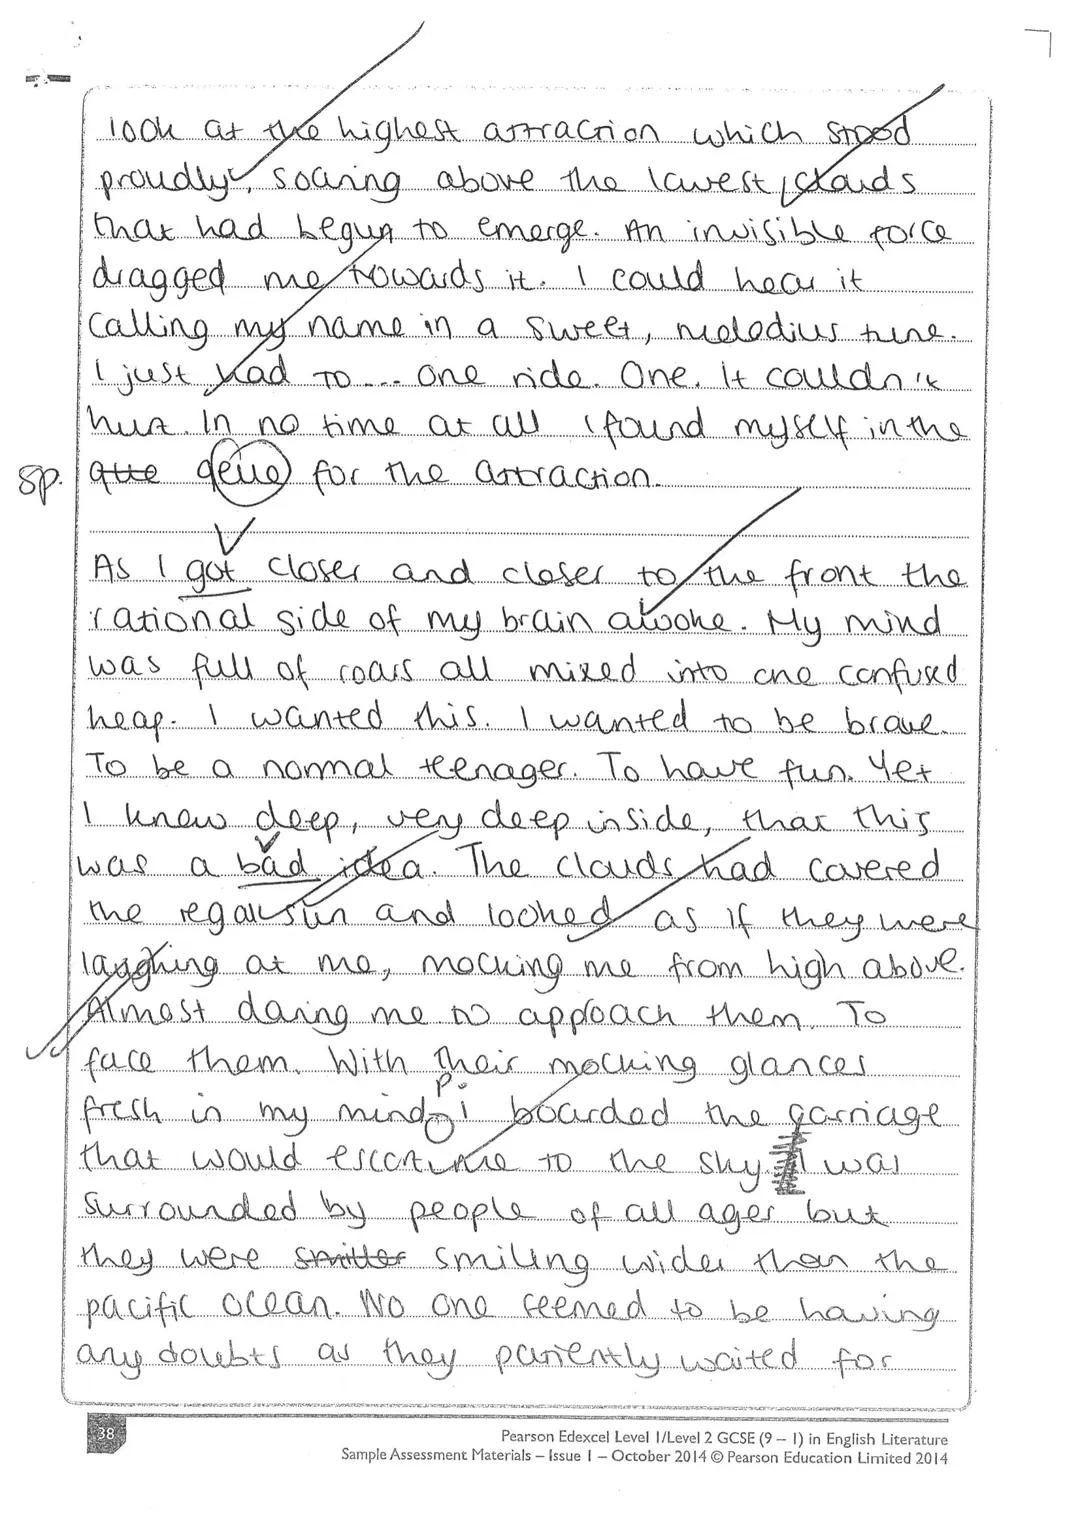 look at the highest attraction which stood
proudly, soaring above the lowest clouds
that had begun to emerge. An invisible force
dragged me towards it. I could hear it
calling my name in a sweet, melodius tune.
I just had to... One ride. One. It couldn't
hurt. In no time at all I found myself in the
sp. qtte qeue for the attraction.
As I got closer and closer to the front the
rational side of my brain awoke. My mind
was full of roars all mixed into one confused
heap. I wanted this. I wanted to be brave.
To be a normal teenager. To have fun. Yet
I knew deep, very deep inside, that this
was a bad idea. The clouds had covered
the regal sun and looked as if they were
laughing at me, mocking me from high above.
Almost daring me to approach them. To
face them. With their mocking glances
p.
fresh in my mind i boarded the carriage
that would escort me to the sky. I was
surrounded by people of all ages but
they were smiling wider than the
pacific ocean. No one seemed to be having
any doubts as they patiently waited for
38
Pearson Edexcel Level 1/Level 2 GCSE (9 – 1) in English Literature
Sample Assessment Materials – Issue 1 – October 2014 © Pearson Education Limited 2014